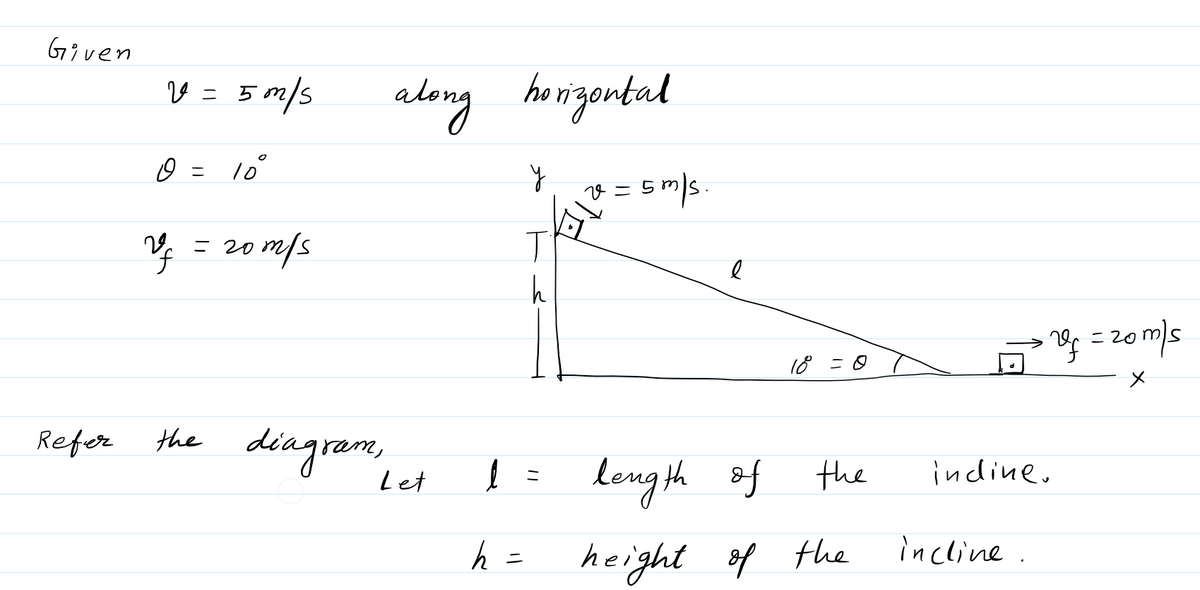 Given
v = 5 m/s along horizontal
θ = 10°
v_f = 20 m/s
y
v = 5 m/s.
l
h
10° = θ
v_f = 20 m/s
x
Refer the diagram,
Let l = length of the incline.
h = height of the incline.